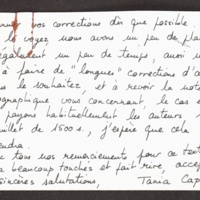 vos corrections dès que possible.
le voyez nous avons un peu de pla
également un peu de temps, aussi
à faire de "longues" corrections d'a
le souhaitez, et à revoir la note
graphique vous concernant, le cas é
payons habituellement les auteurs
uillet de 1500 s., j'espère que cela
endra.
tous nos remerciements pour ce texte
a beaucoup touchés et fait rire, accep
sincères salutations, Tania Cap